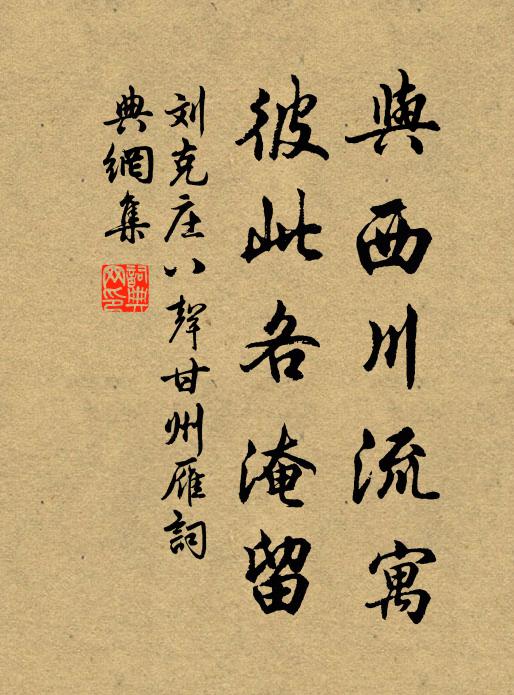 與西川流寓
彼此各淹留
刘克庄八聲甘州雁詞
典網集
詞典網印